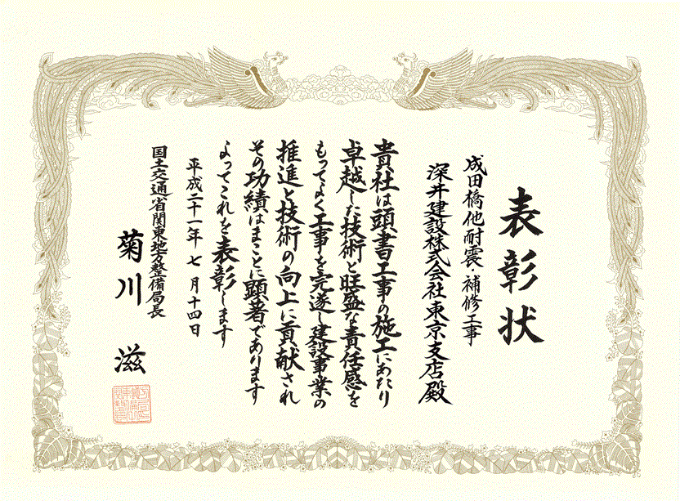 表彰状
成田橋他耐震・補修工事
深井建設株式会社東京支店殿
貴社は頭書工事の施工にあたり
卓越した技術と旺盛な責任感を
もってよく工事を完遂し建設事業の
推進と技術の向上に貢献され
その功績はまことに顕著であります
よってこれを表彰します
平成二十一年七月十四日
国土交通省関東地方整備局長
菊川滋